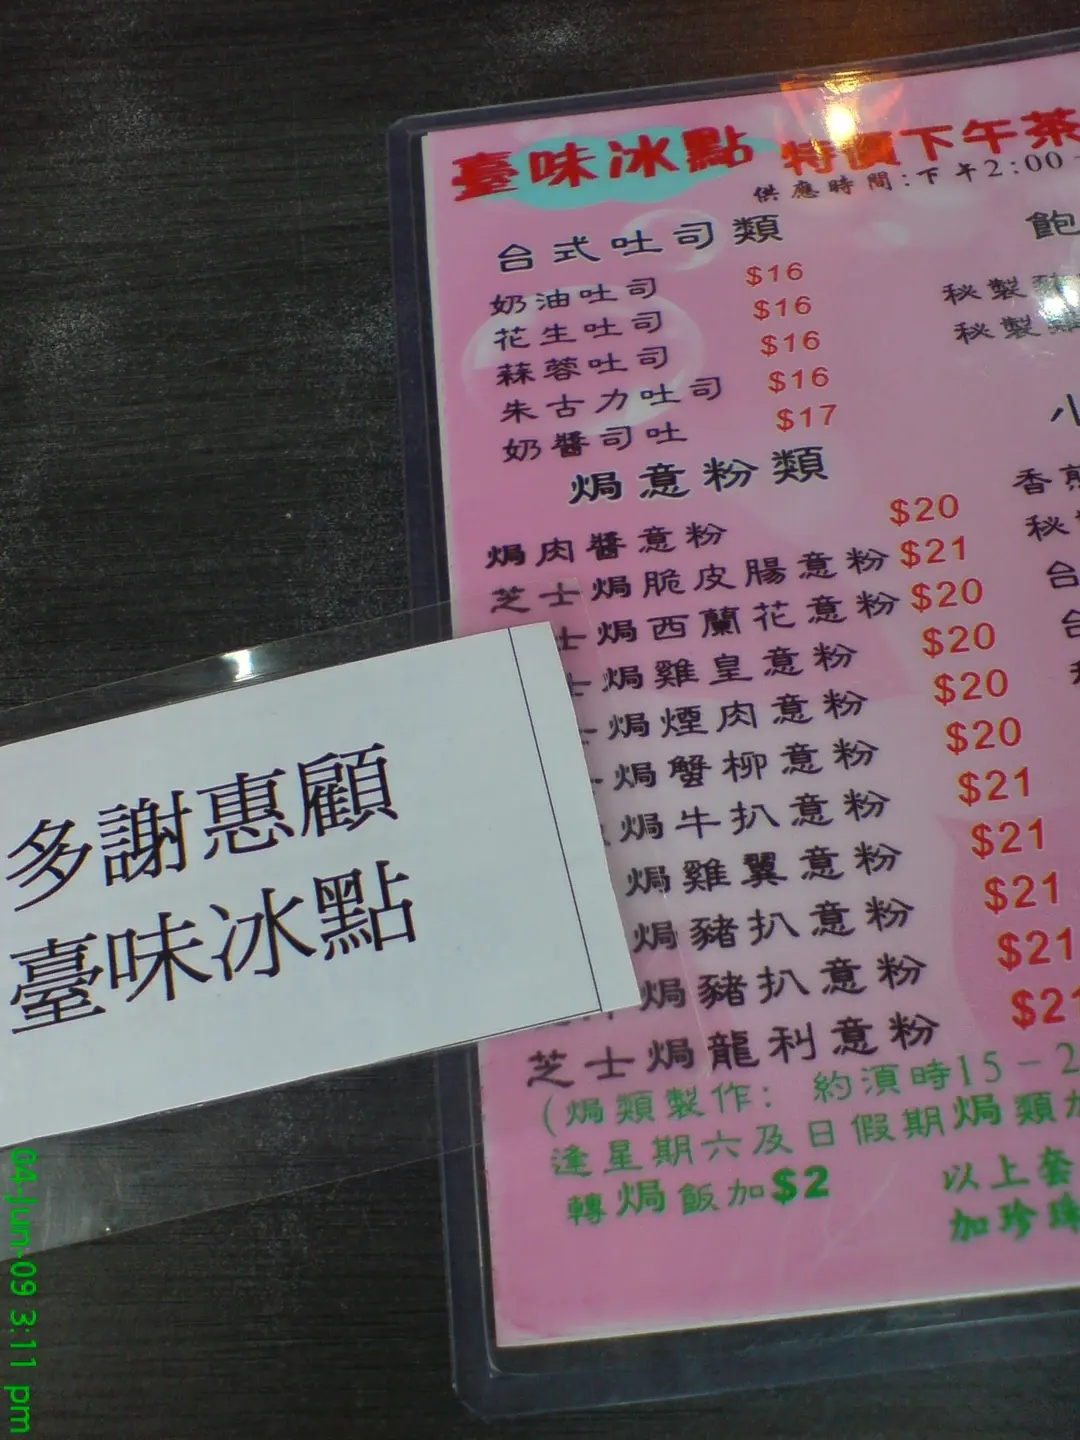 臺味冰點 特價下午茶
供應時間:下午2:00
台式吐司類
奶油吐司 $16
花生吐司 $16
蒜蓉吐司 $16
朱古力吐司 $16
奶醬司吐 $17
焗意粉類
焗肉醬意粉 $20
芝士焗脆皮腸意粉 $21
士焗西蘭花意粉 $20
焗雞皇意粉 $20
焗煙肉意粉 $20
焗蟹柳意粉 $20
焗牛扒意粉 $21
焗雞翼意粉 $21
焗豬扒意粉 $21
焗豬扒意粉 $21
芝士焗龍利意粉 $21
(焗類製作: 約湏時15-2
逢星期六及日假期焗類
轉焗飯加$2
飽
秘製
秘製
小
香煎
秘
台
台
以上套
加珍珠
多謝惠顧
臺味冰點
04-Jun-09 3:11 pm